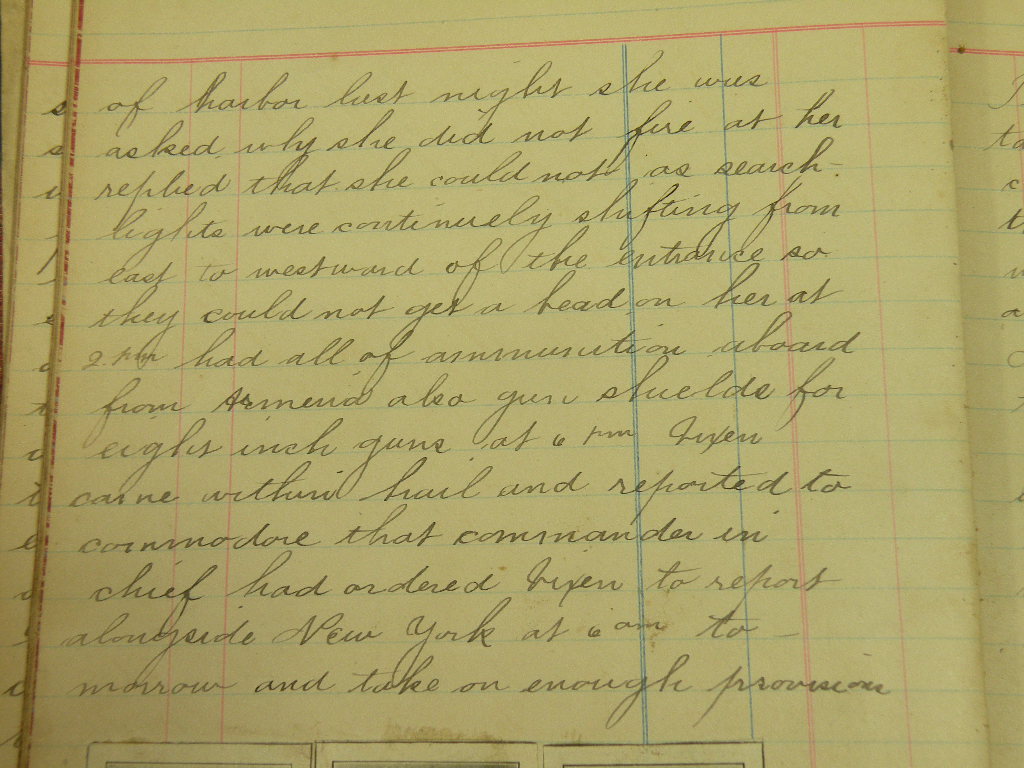 of harbor last night she was
asked why she did not fire at her
replied that she could not as search-
lights were continuely shifting from
east to westward of the entrance so
they could not get a bead on her at
2 pm had all of ammunition aboard
from Armeria also gun shields for
eight inch guns at 6 pm Vixen
came within hail and reported to
commodore that commander in
chief had ordered Vixen to report
alongside New York at 6 am to-
morrow and take on enough provisions